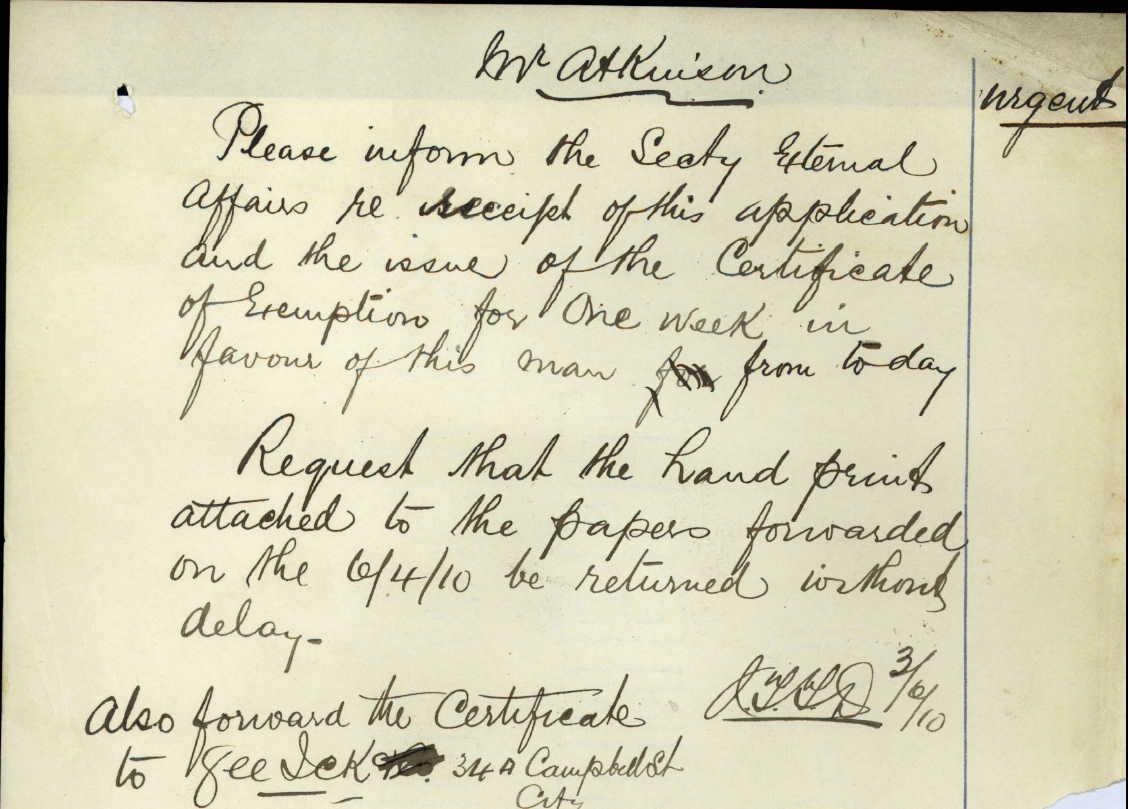 Mr Atkinson
urgent
Please inform the Secty External
Affairs re receipt of this application
and the issue of the Certificate
of Exemption for One week in
favour of this man from to day
Request that the hand print
attached to the papers forwarded
on the 6/4/10 be returned without
delay-
3/6/10
Also forward the Certificate
to Gee Ick 34A Campbell St
City